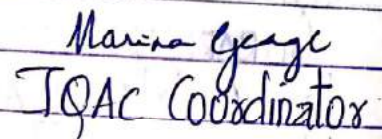 Marina George
IQAC Coordinator